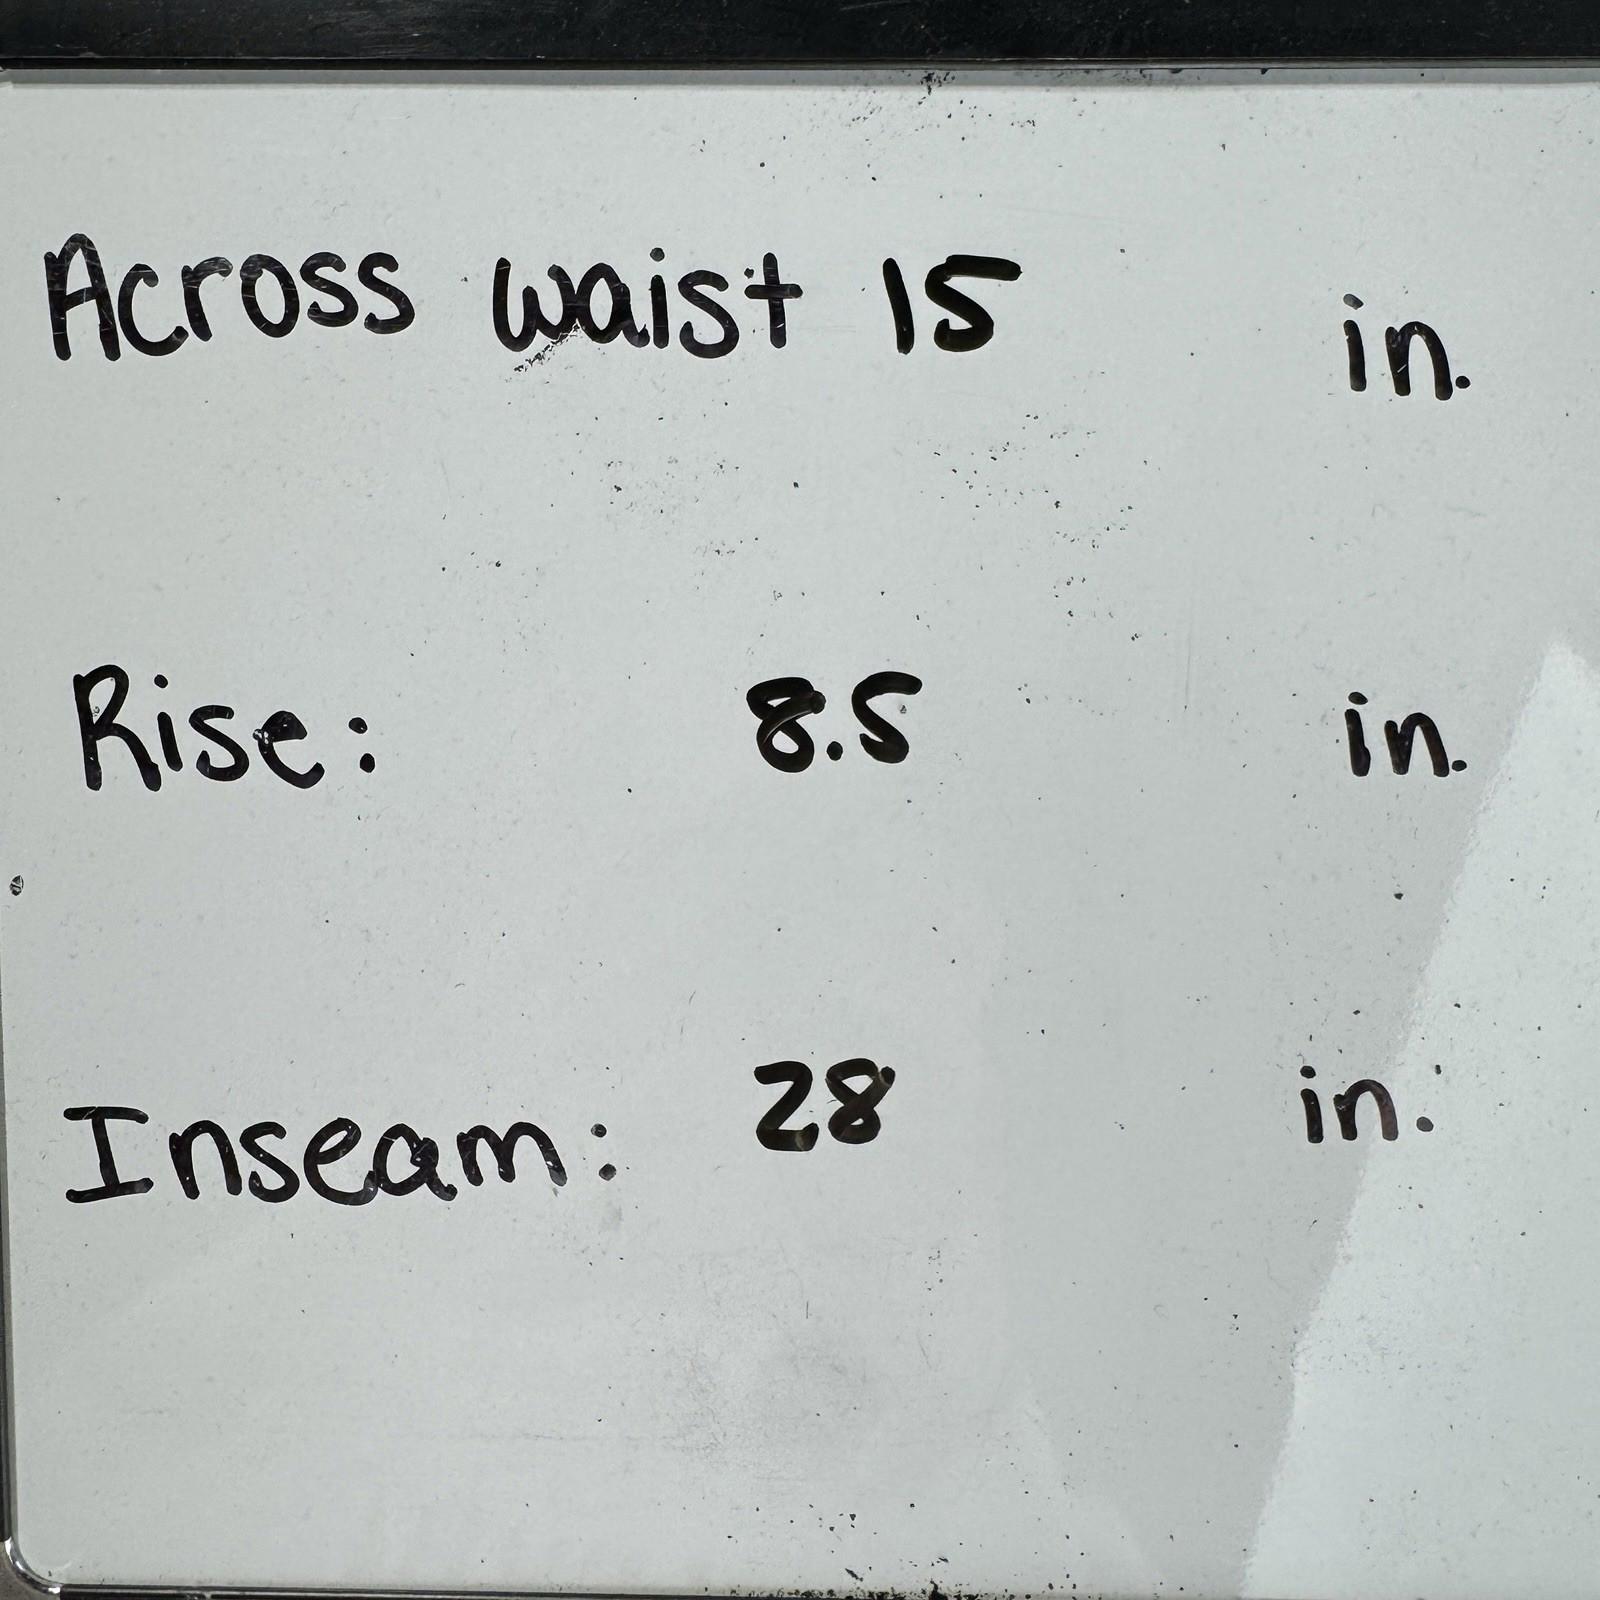 Across waist 15 in.
Rise: 8.5 in.
Inseam: 28 in.